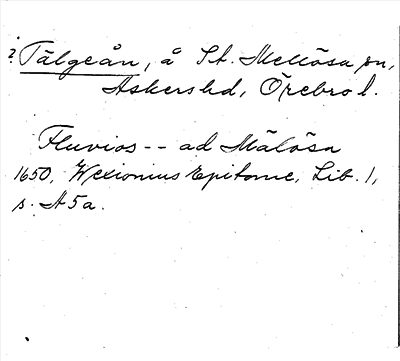 ? Tälgeån, å St. Mellösa sn,
Askers hd, Örebro l.
Fluvios -- ad Mälösa
1650, Wexionius Epitome, Lib. 1,
s. A5a.